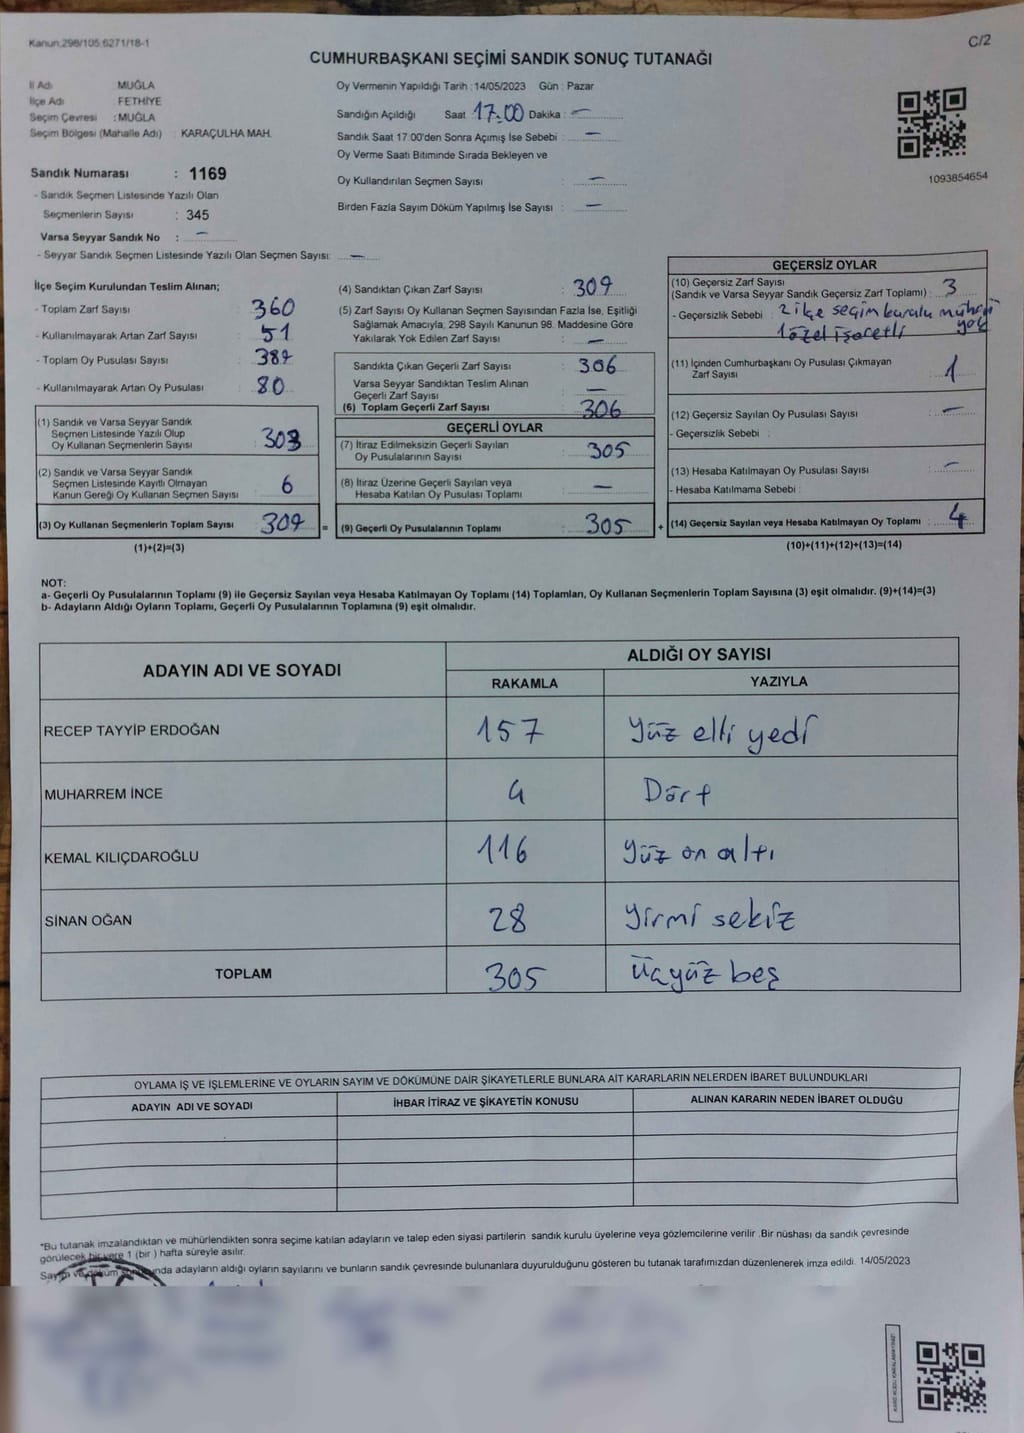 Kanun:298/105;6271/18-1
C/2
CUMHURBAŞKANI SEÇİMİ SANDIK SONUÇ TUTANAĞI
İl Adı : MUĞLA
İlçe Adı : FETHİYE
Seçim Çevresi : MUĞLA
Seçim Bölgesi (Mahalle Adı) : KARAÇULHA MAH.
Sandık Numarası : 1169
- Sandık Seçmen Listesinde Yazılı Olan
Seçmenlerin Sayısı : 345
Varsa Seyyar Sandık No : —
- Seyyar Sandık Seçmen Listesinde Yazılı Olan Seçmen Sayısı: —
Oy Vermenin Yapıldığı Tarih : 14/05/2023 Gün : Pazar
Sandığın Açıldığı Saat 17.00 Dakika : —
Sandık Saat 17.00'den Sonra Açımış İse Sebebi : —
Oy Verme Saati Bitiminde Sırada Bekleyen ve
Oy Kullandırılan Seçmen Sayısı : —
Birden Fazla Sayım Döküm Yapılmış İse Sayısı : —
1093854654
İlçe Seçim Kurulundan Teslim Alınan;
- Toplam Zarf Sayısı : 360
- Kullanılmayarak Artan Zarf Sayısı : 51
- Toplam Oy Pusulası Sayısı : 389
- Kullanılmayarak Artan Oy Pusulası : 80
(1) Sandık ve Varsa Seyyar Sandık
Seçmen Listesinde Yazılı Olup
Oy Kullanan Seçmenlerin Sayısı : 303
(2) Sandık ve Varsa Seyyar Sandık
Seçmen Listesinde Kayıtlı Olmayan
Kanun Gereği Oy Kullanan Seçmen Sayısı : 6
(3) Oy Kullanan Seçmenlerin Toplam Sayısı : 309 =
(1)+(2)=(3)
(4) Sandıktan Çıkan Zarf Sayısı : 309
(5) Zarf Sayısı Oy Kullanan Seçmen Sayısından Fazla İse, Eşitliği
Sağlamak Amacıyla, 298 Sayılı Kanunun 98. Maddesine Göre
Yakılarak Yok Edilen Zarf Sayısı : —
Sandıkta Çıkan Geçerli Zarf Sayısı : 306
Varsa Seyyar Sandıktan Teslim Alınan
Geçerli Zarf Sayısı : —
(6) Toplam Geçerli Zarf Sayısı : 306
GEÇERLİ OYLAR
(7) İtiraz Edilmeksizin Geçerli Sayılan
Oy Pusulalarının Sayısı : 305
(8) İtiraz Üzerine Geçerli Sayılan veya
Hesaba Katılan Oy Pusulası Toplamı : —
(9) Geçerli Oy Pusulalarının Toplamı : 305 +
GEÇERSİZ OYLAR
(10) Geçersiz Zarf Sayısı
(Sandık ve Varsa Seyyar Sandık Geçersiz Zarf Toplamı) : 3
- Geçersizlik Sebebi : 2 ilçe seçim kurulu mührü
1 özel işaretli yok
(11) İçinden Cumhurbaşkanı Oy Pusulası Çıkmayan
Zarf Sayısı : 1
(12) Geçersiz Sayılan Oy Pusulası Sayısı : —
- Geçersizlik Sebebi :
(13) Hesaba Katılmayan Oy Pusulası Sayısı : —
- Hesaba Katılmama Sebebi :
(14) Geçersiz Sayılan veya Hesaba Katılmayan Oy Toplamı : 4
(10)+(11)+(12)+(13)=(14)
NOT:
a- Geçerli Oy Pusulalarının Toplamı (9) ile Geçersiz Sayılan veya Hesaba Katılmayan Oy Toplamı (14) Toplamları, Oy Kullanan Seçmenlerin Toplam Sayısına (3) eşit olmalıdır. (9)+(14)=(3)
b- Adayların Aldığı Oyların Toplamı, Geçerli Oy Pusulalarının Toplamına (9) eşit olmalıdır.
ADAYIN ADI VE SOYADI ALDIĞI OY SAYISI
RAKAMLA YAZIYLA
RECEP TAYYİP ERDOĞAN 157 Yüz elli yedi
MUHARREM İNCE 4 Dört
KEMAL KILIÇDAROĞLU 116 Yüz on altı
SİNAN OĞAN 28 Yirmi sekiz
TOPLAM 305 Üçyüz beş
OYLAMA İŞ VE İŞLEMLERİNE VE OYLARIN SAYIM VE DÖKÜMÜNE DAİR ŞİKAYETLERLE BUNLARA AİT KARARLARIN NELERDEN İBARET BULUNDUKLARI
ADAYIN ADI VE SOYADI İHBAR İTİRAZ VE ŞİKAYETİN KONUSU ALINAN KARARIN NEDEN İBARET OLDUĞU
*Bu tutanak imzalandıktan ve mühürlendikten sonra seçime katılan adayların ve talep eden siyasi partilerin sandık kurulu üyelerine veya gözlemcilerine verilir .Bir nüshası da sandık çevresinde
görülecek bir yere 1 (bir ) hafta süreyle asılır.
Sayım ve döküm sonucunda adayların aldığı oyların sayılarını ve bunların sandık çevresinde bulunanlara duyurulduğunu gösteren bu tutanak tarafımızdan düzenlenerek imza edildi. 14/05/2023